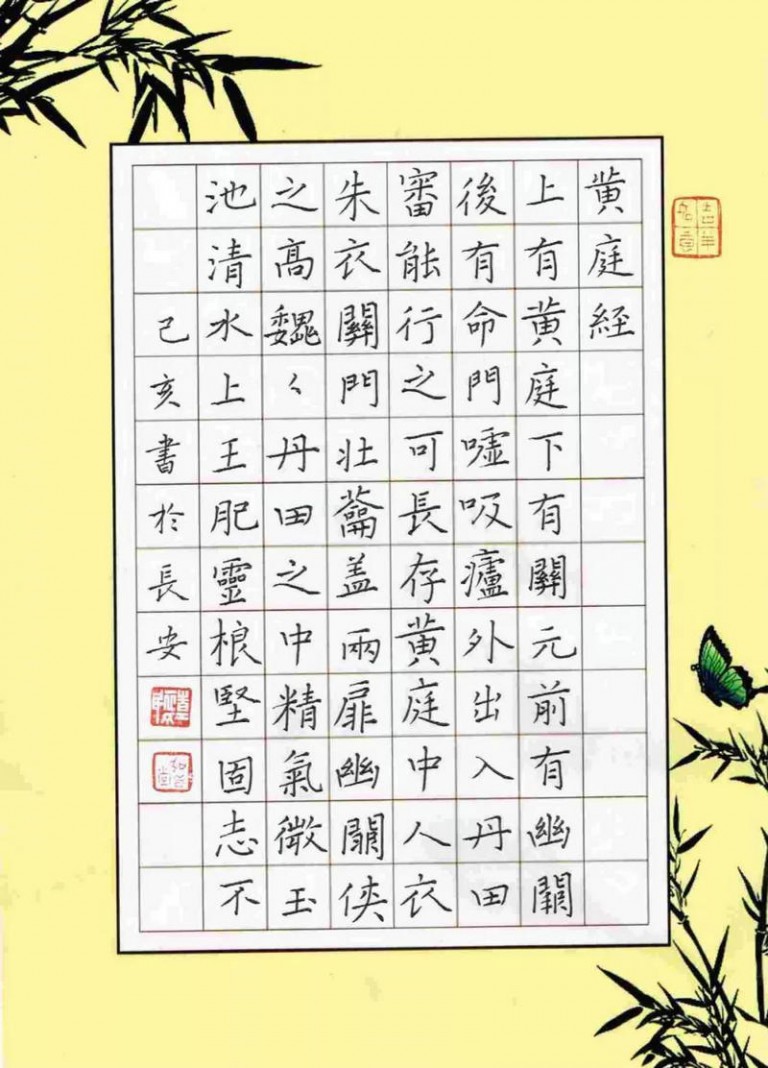 黄庭經
上有黄庭下有關元前有幽闕
後有命門噓吸廬外出入丹田
審能行之可長存黄庭中人衣
朱衣關門壯籥盖兩扉幽闕俠
之高巍々丹田之中精氣微玉
池清水上王肥靈根堅固志不
己亥書於長安